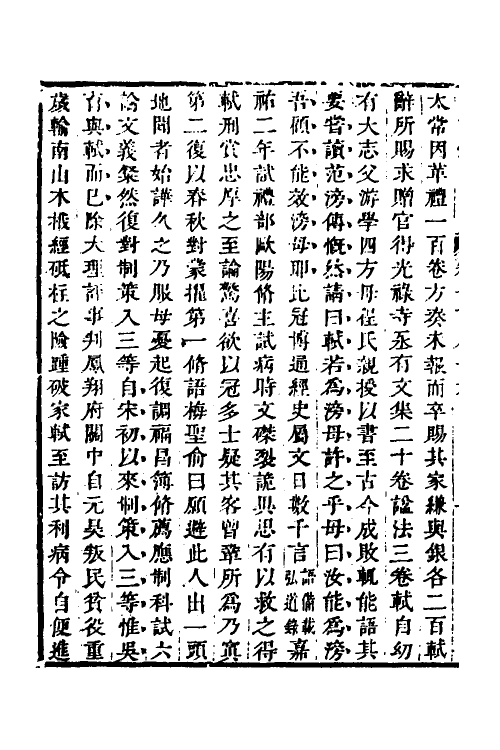 太常因革禮一百卷方奏未報而卒賜其家縑與銀各二百軾
辭所賜求贈官得光祿寺丞有文集二十卷諡法三卷軾自幼
有大志父游學四方母程氏親授以書至古今成敗輒能語其
要嘗讀范滂傳慨然請曰軾若爲滂母許之乎母曰汝能爲滂
吾顧不能效滂母耶比冠博通經史屬文日數千言語備載弘道錄嘉
祐二年試禮部歐陽脩主試病時文磔裂詭異思有以救之得
軾刑賞忠厚之至論驚喜欲以冠多士疑其客曾鞏所爲乃寘
第二復以春秋對義擢第一脩語梅聖俞曰願避此人出一頭
地聞者始譁久之乃服母憂起復調福昌簿脩薦應制科試六
論文義粲然復對制策入三等自宋初以來制策入三等惟吳
育與軾而已除大理評事判鳳翔府關中自元昊叛民貧役重
歲輸南山木栰經砥柱之險踵破家軾至訪其利病令自便進